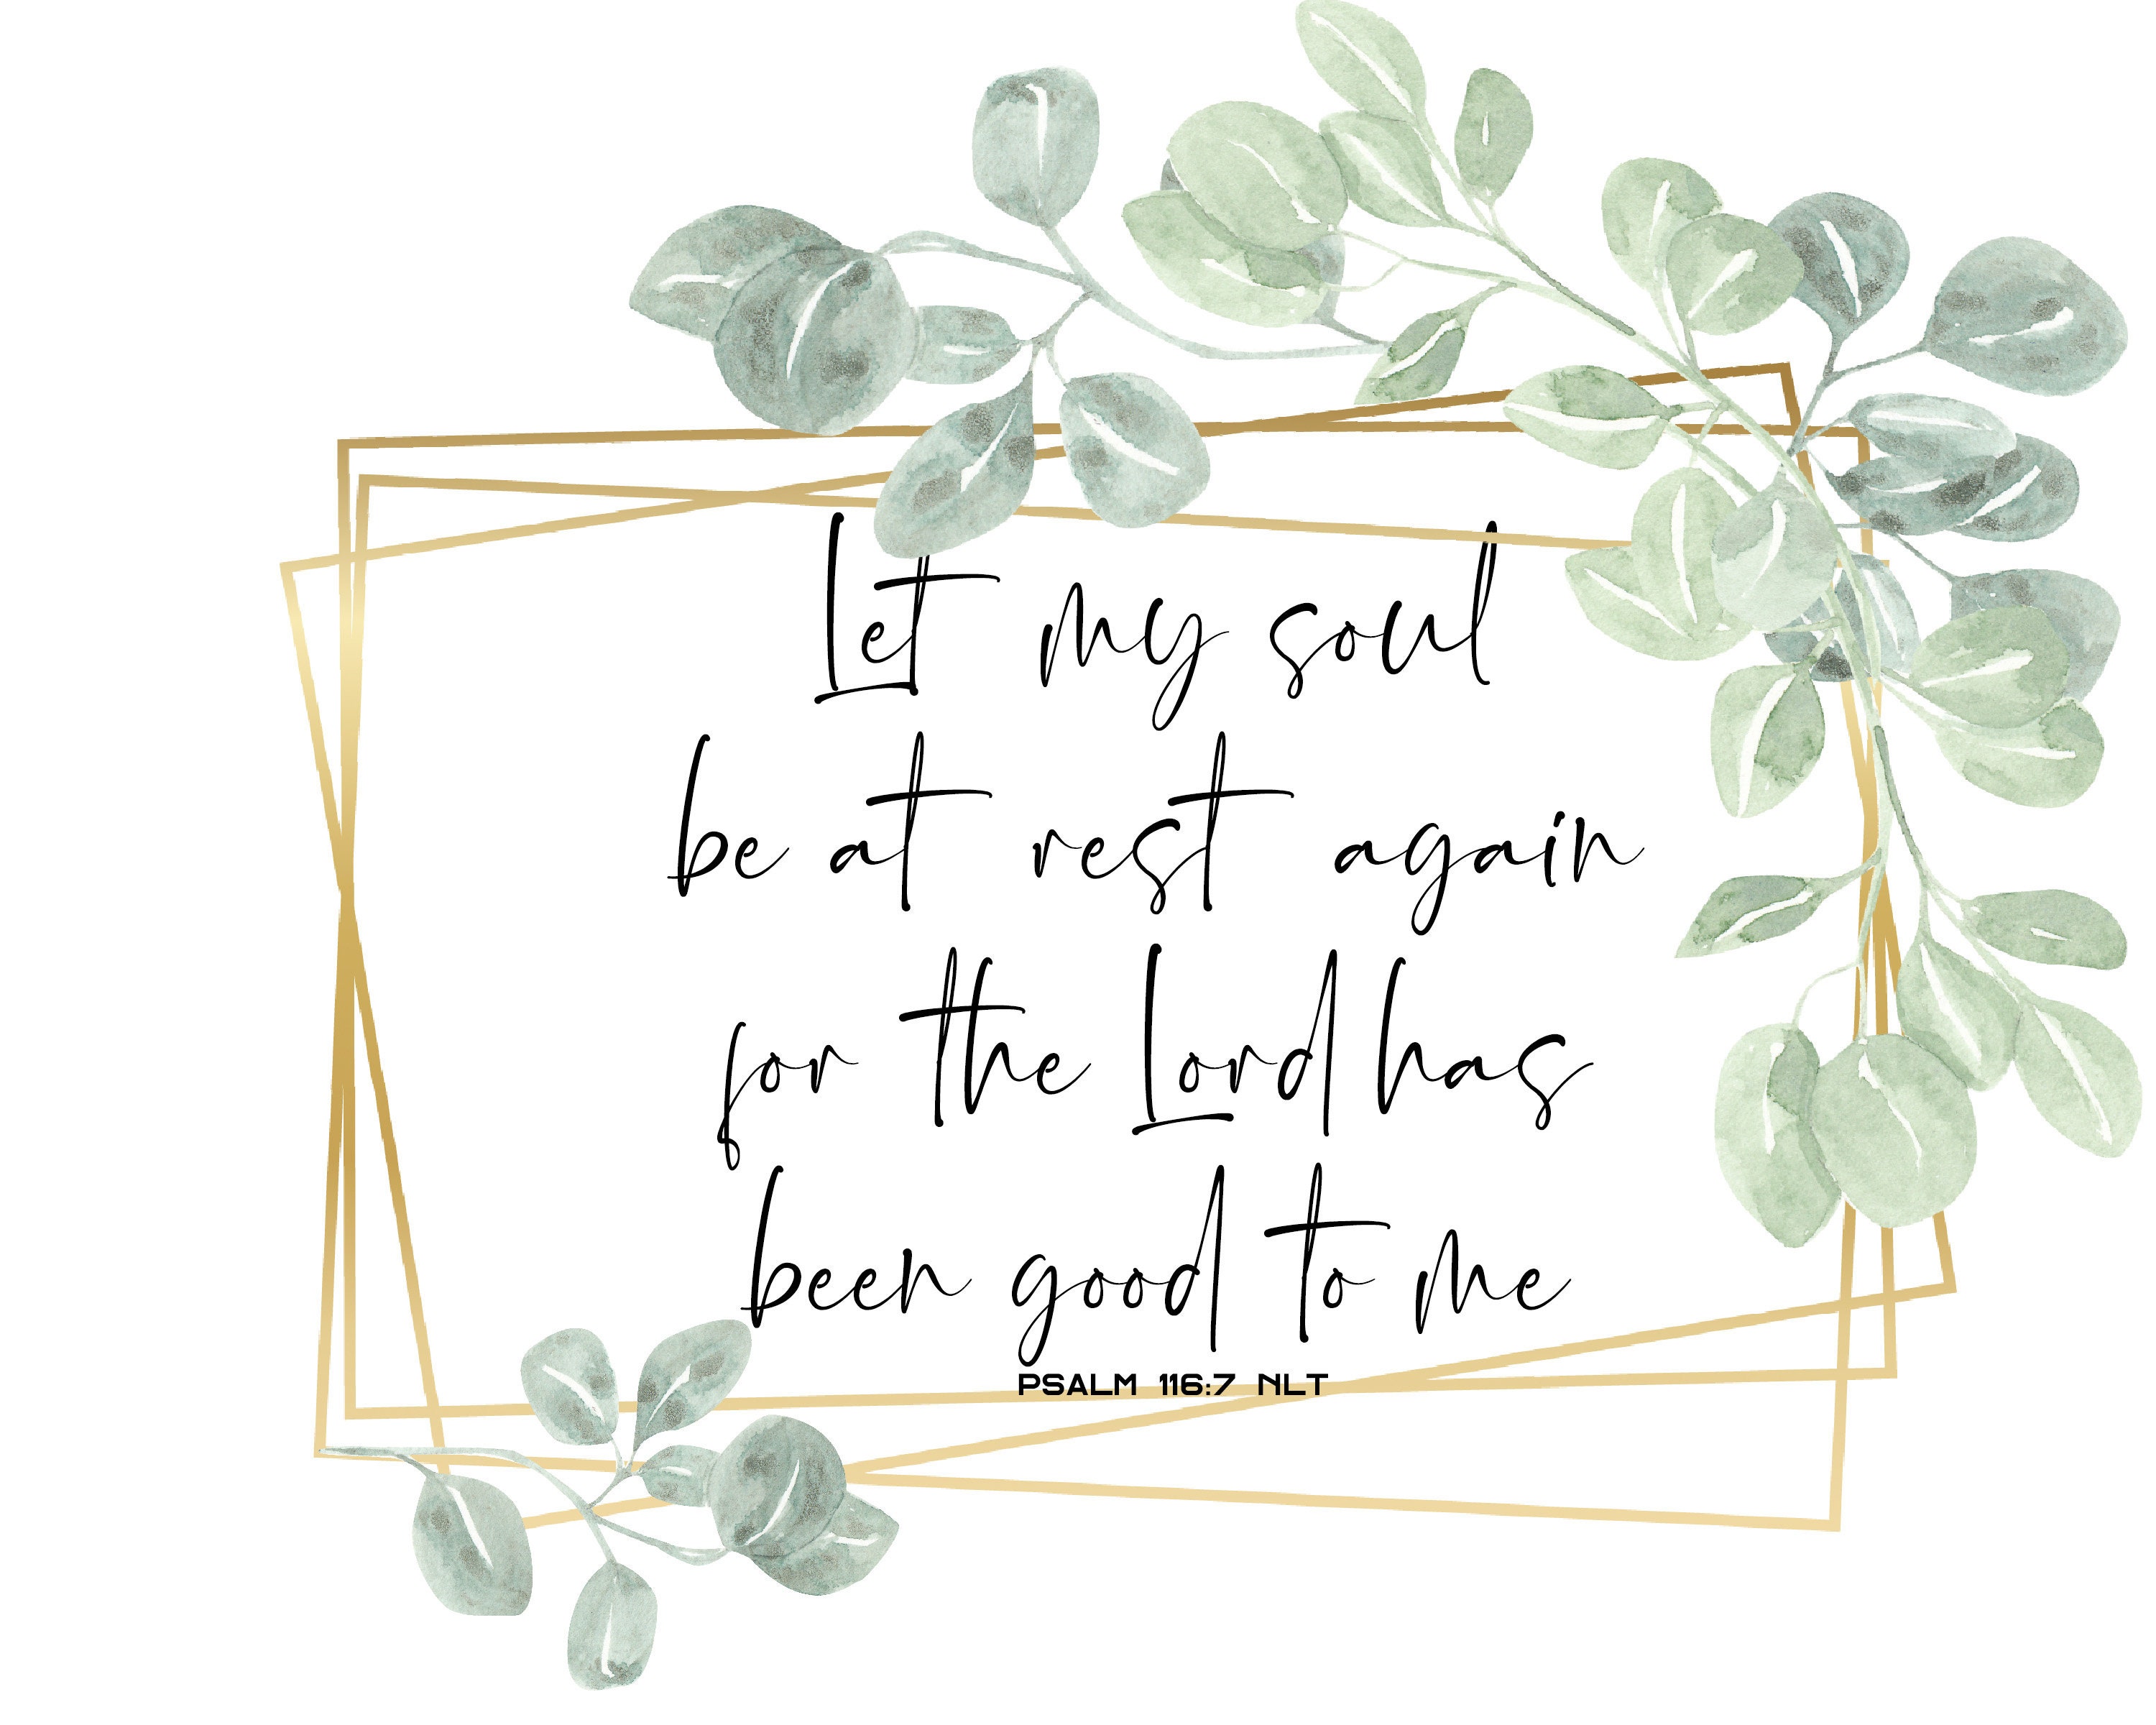 Let my soul
be at rest again
for the Lord has
been good to me
PSALM 116:7 NLT